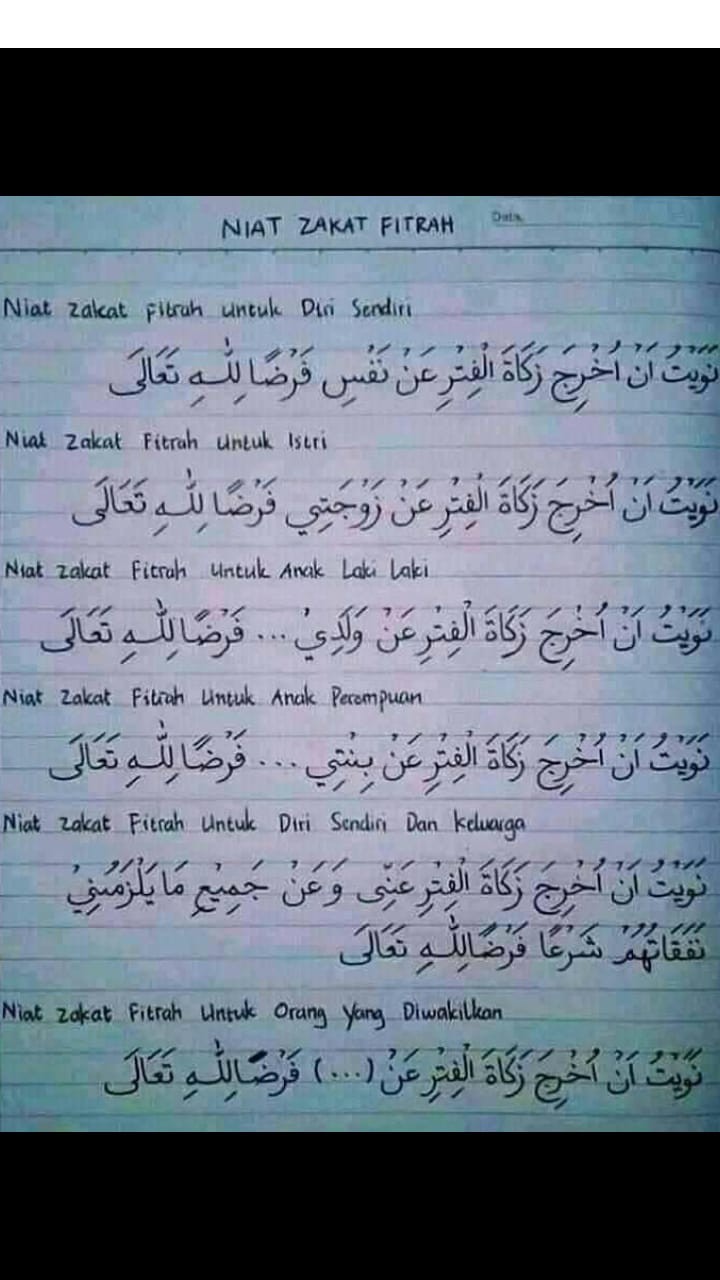 NIAT ZAKAT FITRAH
Date
Niat Zakat Fitrah Untuk Diri Sendiri
نَوَيْتُ اَنْ اُخْرِجَ زَكَاةَ الْفِتْرِ عَنْ نَفْسِ فَرْضًا لِلّٰهِ تَعَالَى
Niat Zakat Fitrah Untuk Istri
نَوَيْتُ اَنْ اُخْرِجَ زَكَاةَ الْفِتْرِ عَنْ زَوْجَتِي فَرْضًا لِلّٰهِ تَعَالَى
Niat Zakat Fitrah Untuk Anak Laki Laki
نَوَيْتُ اَنْ اُخْرِجَ زَكَاةَ الْفِتْرِ عَنْ وَلَدِيْ ... فَرْضًا لِلّٰهِ تَعَالَى
Niat Zakat Fitrah Untuk Anak Perempuan
نَوَيْتُ اَنْ اُخْرِجَ زَكَاةَ الْفِتْرِ عَنْ بِنْتِي ... فَرْضًا لِلّٰهِ تَعَالَى
Niat Zakat Fitrah Untuk Diri Sendiri Dan Keluarga
نَوَيْتُ اَنْ اُخْرِجَ زَكَاةَ الْفِتْرِ عَنِّى وَعَنْ جَمِيْعِ مَا يَلْزَمُنِيْ
نَفَقَاتُهُمْ شَرْعًا فَرْضًا لِلّٰهِ تَعَالَى
Niat Zakat Fitrah Untuk Orang Yang Diwakilkan
نَوَيْتُ اَنْ اُخْرِجَ زَكَاةَ الْفِتْرِ عَنْ (...) فَرْضًا لِلّٰهِ تَعَالَى